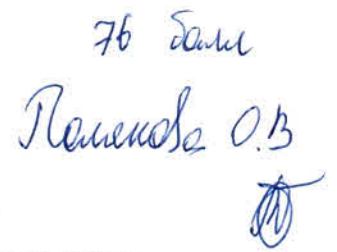 76 балл
Полякова О.В